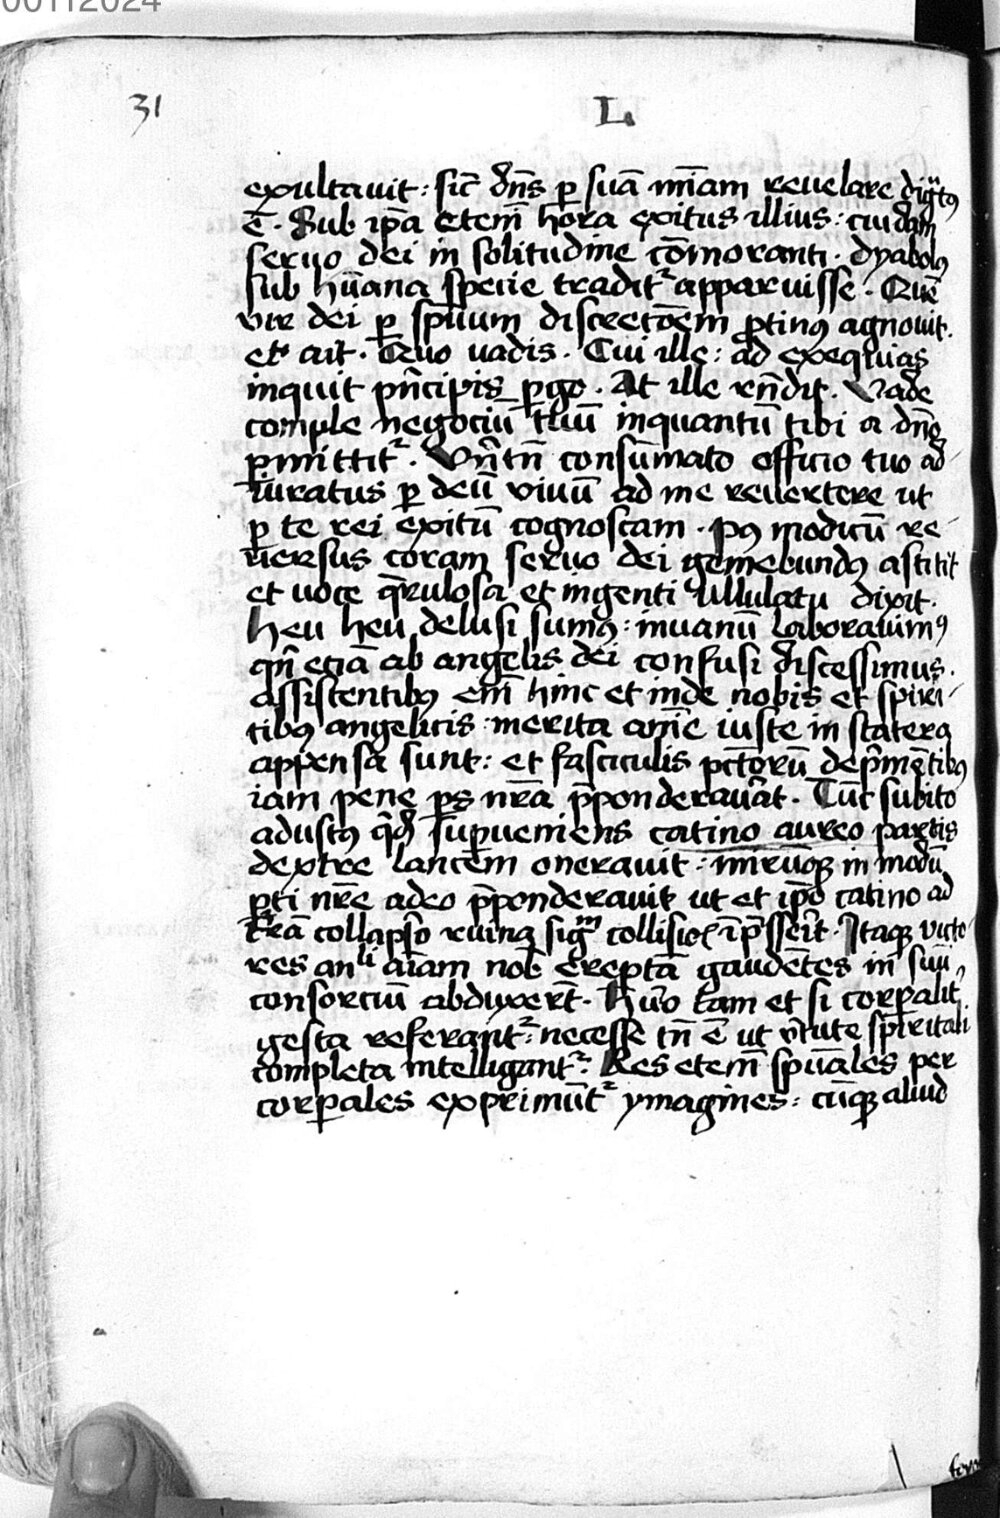 00112024
31
L.
exultavit : sic̄ dn̄s p̱ suā mīam reuelare dig͂tꝰ
ē . Sub ip̄a eteni̅ hora exitus illius : cuidam
seruo dei in solitudine cōmoranti . dyabolꝰ
sub hūana specie tradit᷑ apparuisse . Quē
vir dei p̱ spūum discretōem ꝓtinꝰ agnouit.
et ait . Quo vadis . Cui ille : ad exequias
inquit pn̄cipis p̱go . At ille rn̄dit . Vade
comple negociū tuū inquantū tibi a dn̄o
p̱mittit᷑ . Vn̄tn̄ consūmato officio tuo ad-
iuratus p̱ deū viuū ad me reuertere ut
p̱ te rei exitū cognoscam . pꝰ modicū re-
uersus coram seruo dei gemebundꝰ astitit
et uoce q̄rulosa et ingenti ullulatu dixit .
heu heu delusi sumꝰ : inuanū laborauimꝰ
qn̄ etiā ab angelis dei confusi discessimus .
assistentibꝰ eni̅ hinc et inde nobis et spiri-
tibꝰ angelicis : merita aīe iuste in statera
appensa sunt : et fasciculis pctōrū dep̄mētibꝰ
iam pene ps nr̄a p̄ponderauāt . Tūc subito
adustꝰ qd̄ sup̱ueniens catino aureo partis
dextre lancem onerauit : mirūoꝗ in modū
p̱ti nr̄e adeo p̄ponderauit ut et ip̄o catino ad
tr̄a collapso ruina collisio īp̄sserit . Itaqꝫ victo-
res an͂li aīam nob̄ ereptā gaudētes in sui
consorciū abduxer̄t . H̄ v̄o tam et si corp̱alit̄
gesta referant᷑ : necesse tn̄ ē ut v̄tute spiritali
completa intelligant᷑ . Res eteni̅ spūales per
corp̱ales exprimūt᷑ ymagines : cūqꝫ aliud